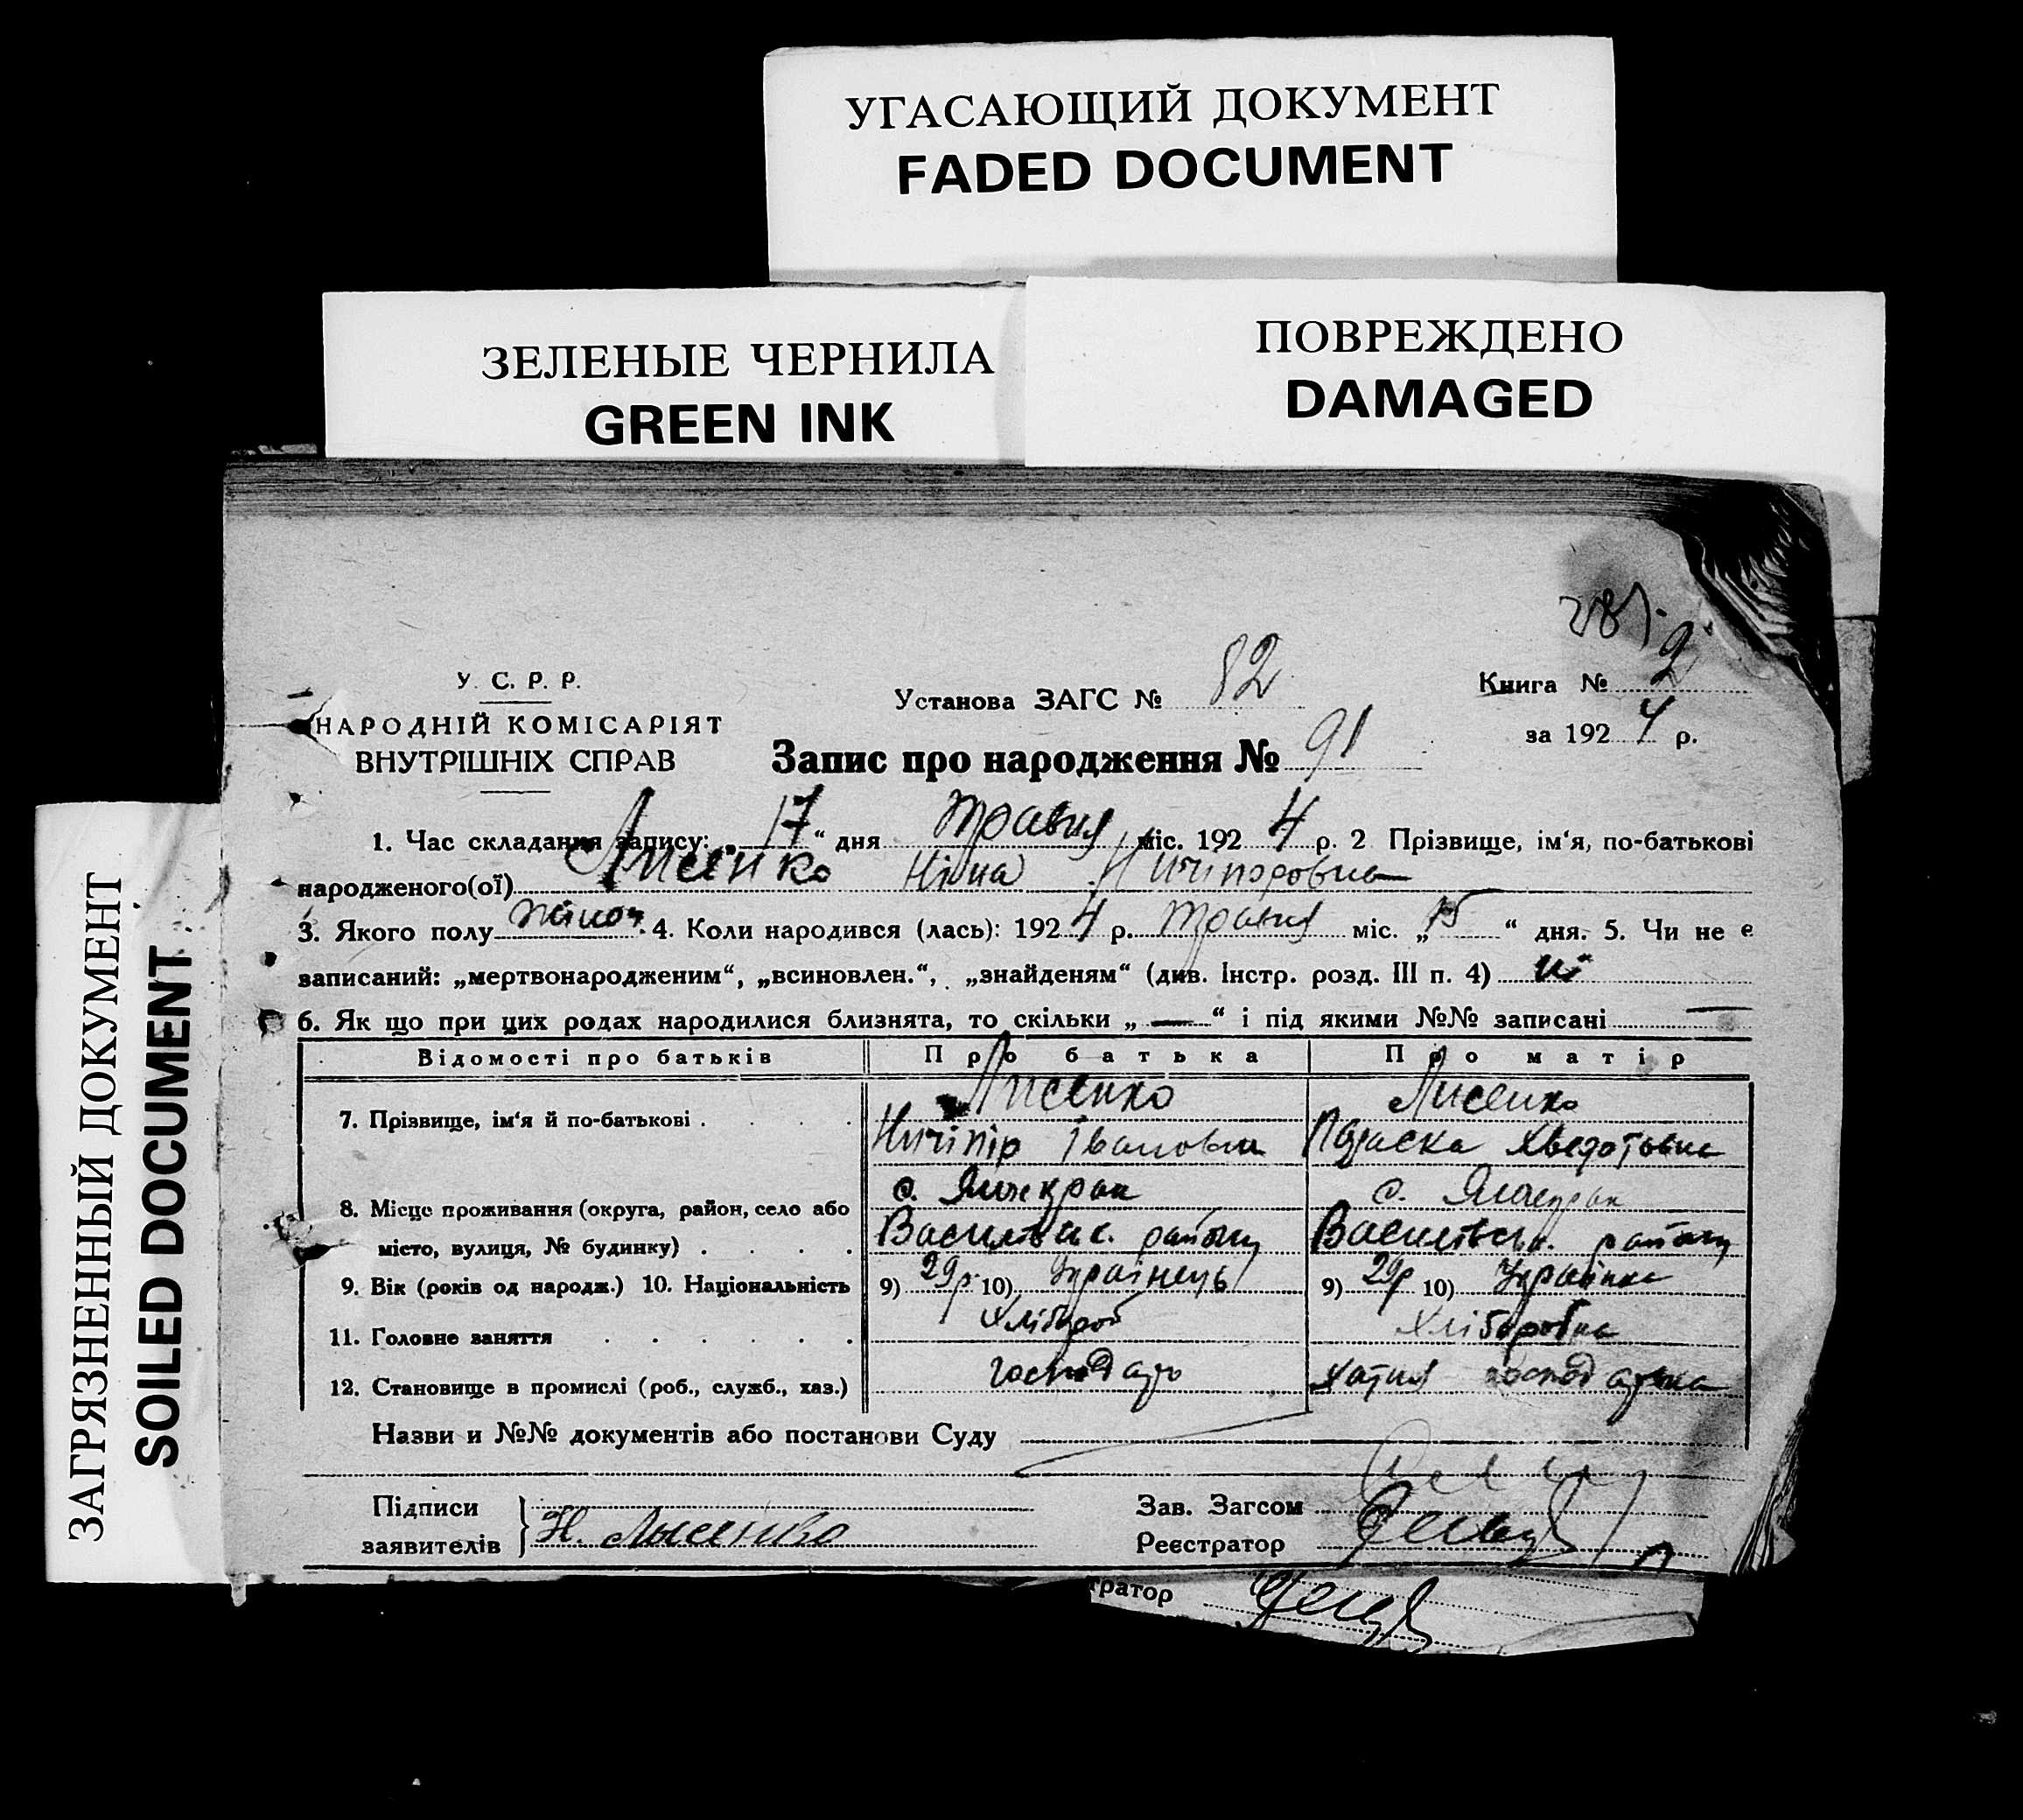 УГАСАЮЩИЙ ДОКУМЕНТ
FADED DOCUMENT
ЗЕЛЕНЫЕ ЧЕРНИЛА
GREEN INK
ПОВРЕЖДЕНО
DAMAGED
ЗАГРЯЗНЕННЫЙ ДОКУМЕНТ
SOILED DOCUMENT
У. С. Р. Р.
НАРОДНІЙ КОМІСАРІЯТ
ВНУТРІШНІХ СПРАВ
Установа ЗАГС № 82
Книга № 2
за 1924 р.
Запис про народження № 91
1. Час складання запису: „17“ дня травня міс. 1924 р. 2 Прізвище, ім'я, по-батькові
народженого(ої) Лисенко Ніна Ничіпоровна
3. Якого полу жіноч. 4. Коли народився (лась): 1924 р. травня міс. „15“ дня. 5. Чи не є
записаний: „мертвонародженим“, „всиновлен.“, „знайденям“ (див. Інстр. розд. III п. 4) ні
6. Як що при цих родах народилися близнята, то скільки „—“ і під якими №№ записані —
Відомості про батьків Про батька Про матір
7. Прізвище, ім'я й по-батькові . . . . Лисенко Лисенко
Ничіпір Іванович Параска Хведотовна
8. Місце проживання (округа, район, село або с. Янчекрак с. Янчекрак
місто, вулиця, № будинку) . . . . Василівськ. району Василівськ. району
9. Вік (років од народж.) 10. Національність 9) 29р. 10) Українець 9) 29р 10) Українка
11. Головне заняття . . . . . . Хлібороб Хліборобка
12. Становище в промислі (роб., служб., хаз.) господарь хатня господарька
Назви и №№ документів або постанови Суду
Підписи
заявителів Н. Лысенко
Зав. Загсом
Реєстратор
тратор